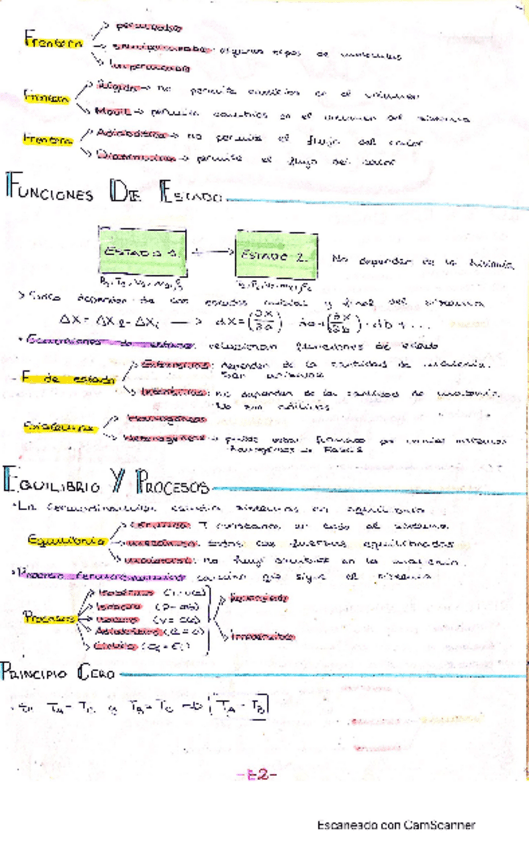 Frontera → permeable
→ semipermeable: algunos tipos de moléculas
→ Impermeable
Frontera → Rígida → no permite cambios en el volumen
→ Móvil → permite cambios en el volumen del sistema
Frontera → Adiabática → no permite el flujo del calor
→ Diatérmica → permite el flujo del calor
FUNCIONES DE ESTADO
ESTADO 1. → ESTADO 2. No dependen de la historia
> Sólo dependen de los estados inicial y final del sistema
ΔX = X₂ - X₁ → dX = (∂X/∂a) da + (∂X/∂b) · db + ...
• Ecuaciones de estado: relacionan funciones de estado
F de estado → Extensivas: dependen de la cantidad de materia.
Son aditivas
→ Intensivas: no dependen de la cantidad de materia.
No son aditivas
Sistema → Homogéneo
→ Heterogéneo → puede estar formado por varios sistemas
homogéneos → Fases
EQUILIBRIO Y PROCESOS
• La termodinámica estudia sistemas en equilibrio
Equilibrio → térmico: T constante en todo el sistema
→ mecánico: todas las fuerzas equilibradas
→ material: no hay cambios en la materia.
• Proceso termodinámico: camino que sigue el sistema
Procesos → Isotérmico (T = cte) → Reversible
→ Isobárico (P = cte)
→ Isocoro (V = cte)
→ Adiabático (Q = 0) → Irreversible
→ Cíclico
PRINCIPIO CERO
• Si T_A = T_C y T_B = T_C → T_A = T_B
-E2-
Escaneado con CamScanner